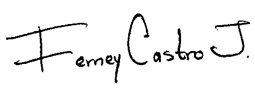 Ferney Castro J.